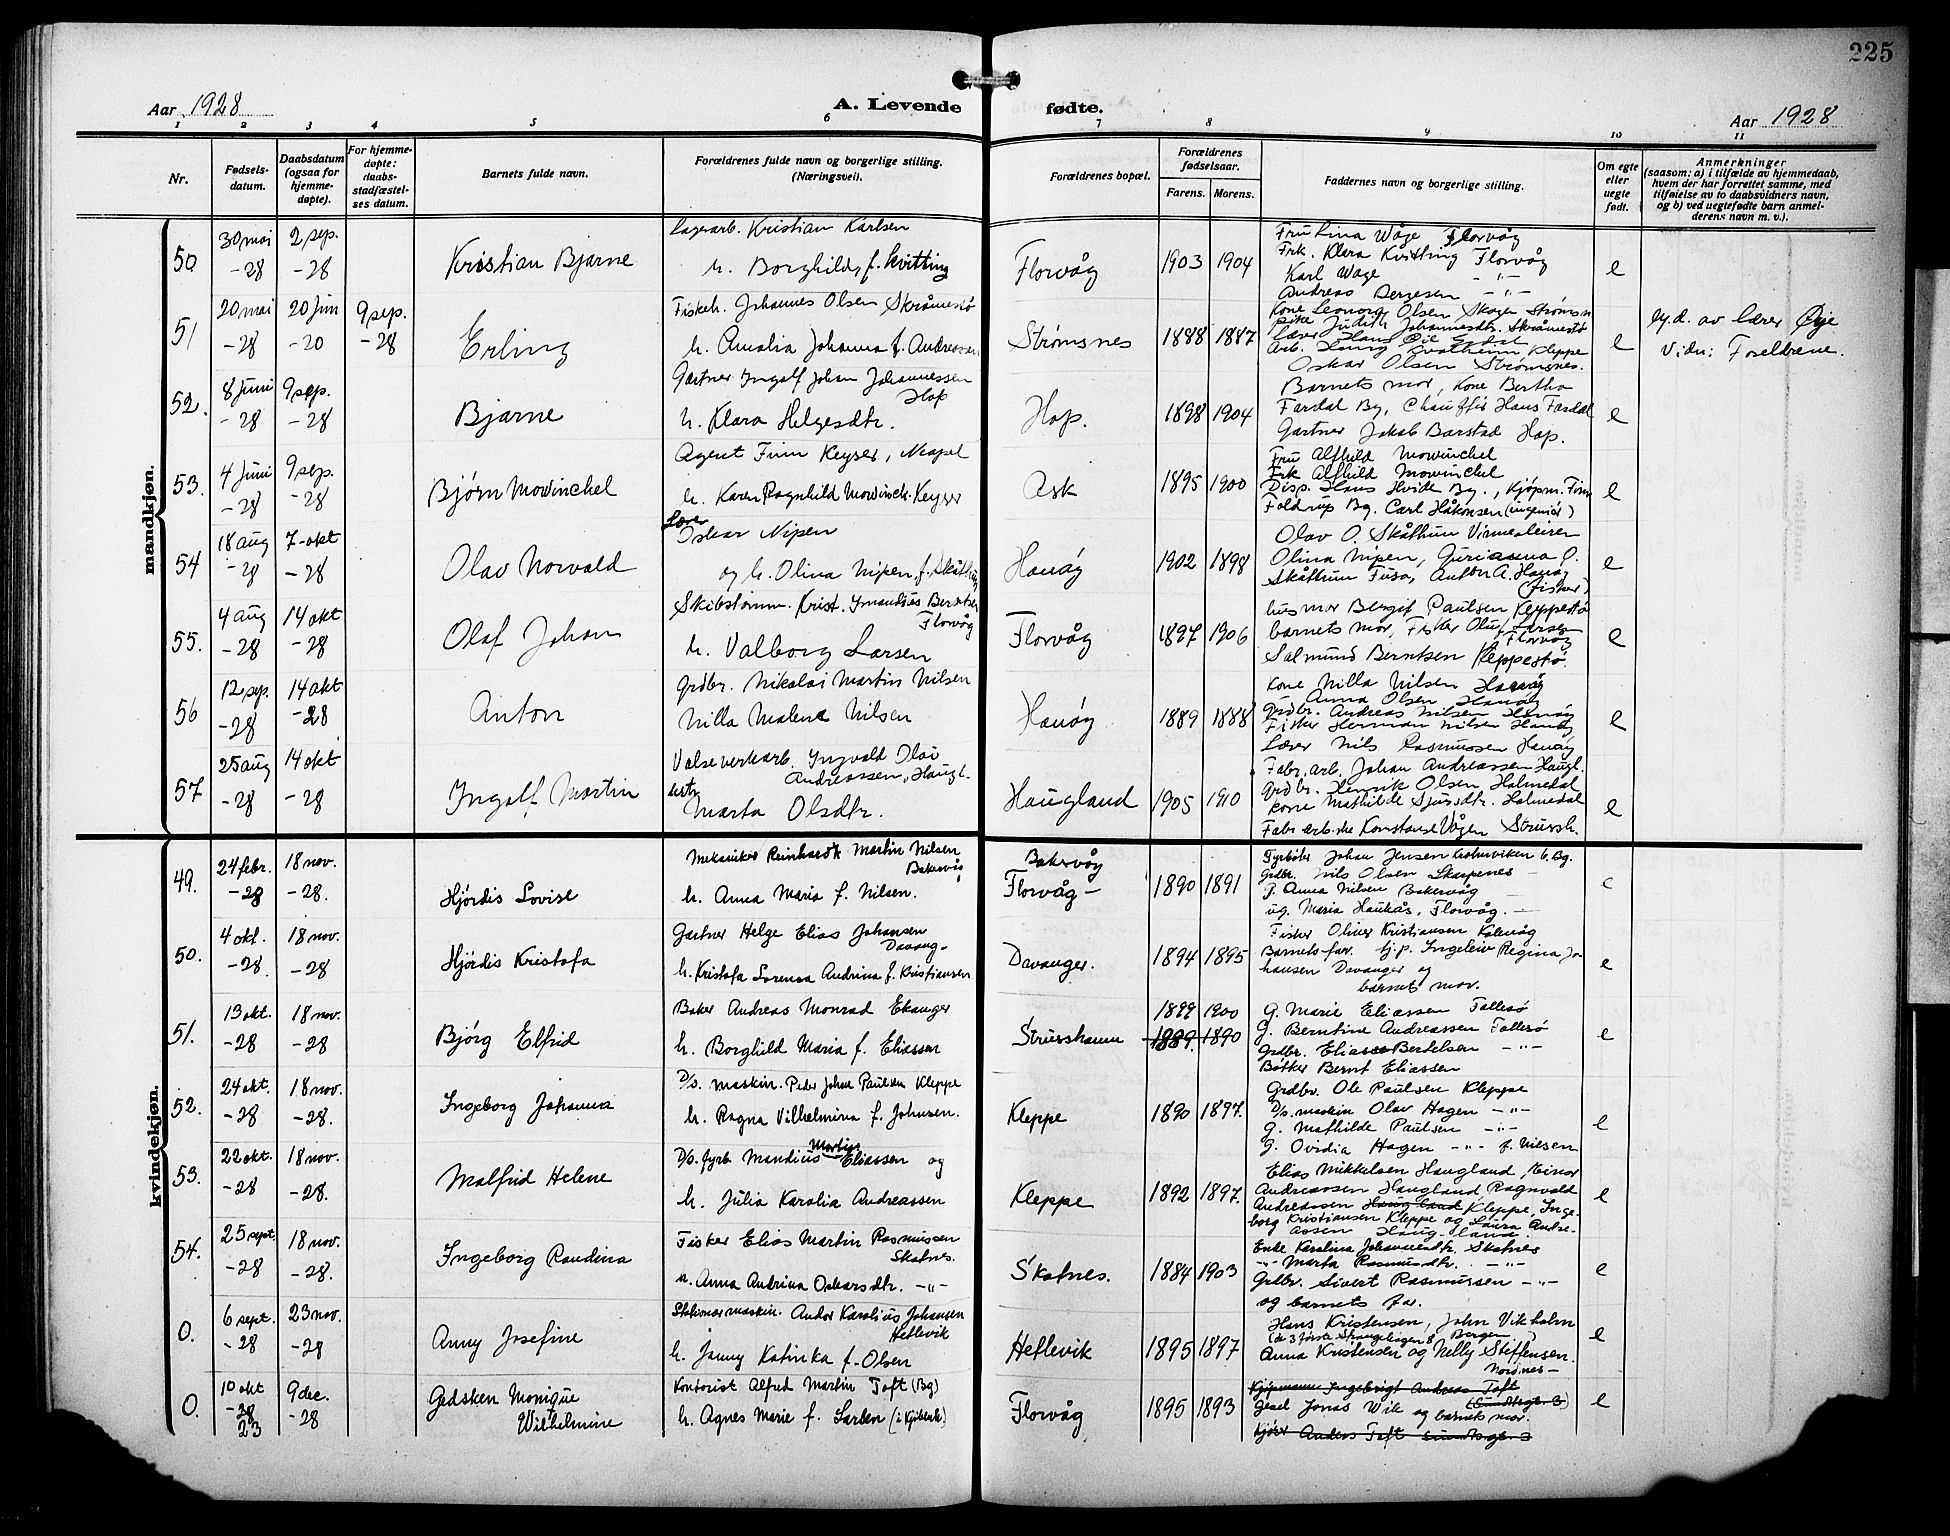 225
Aar 1928 A. Levende fødte. Aar 1928
1 2 3 4 5 6 7 8 9 10 11
Nr.
Fødsels-
datum.
Daabsdatum
(ogsaa for
hjemme-
døpte).
For hjemme-
døpte:
daabs-
stadfæstel-
ses datum.
Barnets fulde navn.
Forældrenes fulde navn og borgerlige stilling.
(Næringsvei).
Forældrenes bopæl.
Forældrenes
fødselsaar.
Farens. Morens.
Faddernes navn og borgerlige stilling.
Om egte
eller
uegte
født.
Anmerkninger
(saasom: a) i tilfælde av hjemmedaab,
hvem der har forrettet samme, med
tilføielse av to daabsvidners navn,
og b) ved uegtefødte barn anmel-
derens navn m. v.).
mandkjøn.
50
30 mai
-28
2 sep.
-28
Kristian Bjarne
Lagerarb. Kristian Karlsen
h. Borghild, f. Kvitting
Florvåg
1903 1904
Fru Lina Wåge Florvåg
Frk. Klara Kvitting Florvåg
Karl Wage -"-
Andreas Bergesen -"-
e
51
20 mai
-28
20 juni
-20
9 sep.
-28
Erling
Fiskeh. Johannes Olsen Skråmestø
h. Amalia Johanna f. Andreassen
Strømsnes
1888 1887
Kone Leonora Olsen Skogen Strømsn
pike Judith Johannesdtr. Skråmestø
Oskar Olsen Strømsnes.
e
Hj.d. av lærer Øye
Vidn: Foreldrene.
52.
8 juni
-28
9 sep.
-28
Bjarne
Gartner Ingolf Johan Johannessen
Hop
h. Klara Helgesdtr.
Hop.
1898 1904
Barnets mor, Kone Bertha
Fardal By, Chauffør Hans Fardal
Gartner Jakob Barstad Hop.
e
53.
4 juni
-28
9 sep.
-28
Bjørn Mowinchel
Agent Finn Keyser, Neapel
h. Karen Ragnhild Mowinch. Keyser
Ask
1895 1900
Fru Alfhild Mowinchel
Frk Alfhild Mowinchel
Disp. Hans Hvide By., Kjøpm. Finn
Foldrup By. Carl Håkonsen (ingeniør)
e
54
18 aug
-28
7-okt
-28
Olav Norvald
Lærer
Oskar Nipen
og h. Olina Nipen, f. Skåthun
Hanøy
1902 1898
Olav O. Skåthun
Olina Nipen, O.
Skåthun Fusa, Anton A. Hanøy
(fisker)
e
55.
4 aug
-28
14 okt
-28
Olaf Johan
Skibstømm. Krist. Berntsen
Florvåg
h. Valborg Larsen
Florvåg
1897 1906
husmor Bergit Paulsen Kleppestø
barnets mor, Fisker Oluf Larsen
Florvåg
Salmund Berntsen Kleppestø.
e
56
12 sep.
-28
14 okt
-28
Anton
Grdbr. Nikolai Martin Nilsen
Nilla Malene Nilsen
Hanøy
1889 1888
Kone Nilla Nilsen Hanøy
Anna Olsen Hanøy
Grdbr. Andreas Nilsen Hanøy
Fisker Herman Nilsen Hanøy
Lærer Nils Rasmussen Hanøy
e
57
25 aug
-28
14 okt
-28
Ingolf Martin
Valseverkarb. Ingvald Olai
Andreassen, Haugl.
ustr.
Marta Olsdtr.
Haugland
1905 1910
Fabr. arb. Johan Andreassen Haugl.
Grdbr. Henrik Olsen Holmedal
kone Mathilde Sjursdtr. Holmedal
Fabr arb.ske Konstanse Vågen Strussh.
e
kvindekjøn.
49.
24 febr.
-28
18 nov.
-28.
Hjørdis Lovise
Mekaniker Reinhardt Martin Nilsen
Bakarvåg
h. Anna Maria f. Nilsen.
Bakervåg
Florvåg -
1890 1891
Fyrbøter Johan Jensen
Grdbr. Nils Olsen Skarpenes -
P. Anna Nilsen Bakervåg -
ug. Maria Haukås, Florvåg. -
e
50.
4 okt.
-28.
18 nov.
-28
Hjørdis Kristofa
Gartner Helge Elias Johansen
Davang-
h. Kristofa Lorensa Andrina f. Kristiansen
Davanger.
1894 1895
Fisker Oliver Kristiansen
Barnets far. hj.p. Ingeleiv Regina Jo-
hansen Davanger og
barnets mor.
e
51.
13 okt.
-28
18 nov.
-28
Bjørg Elfrid
Baker Andreas Monrad Ekanger
h. Borghild Maria f. Eliassen
Strusshamn
1899 1900
1889. 1890
G. Marie Eliassen Follesø
G. Berntine Andreassen Follesø
Grdbr. Elias Bertelsen -"-
Bøtker Bernt Eliassen
e
52.
24 okt.
-28
18 nov.
-28.
Ingeborg Johanna
D/s. maskin. Peder Johan Paulsen Kleppe
h. Ragna Vilhelmina f. Johnsen.
Kleppe
1890 1897.
Grdbr. Ole Paulsen Kleppe
D/s. maskin Olav Hagen -"-
G. Mathilde Paulsen -"-
G. Ovidia Hagen -"- f. Nilsen
e
53.
22 okt.
-28
18 nov.
-28.
Malfrid Helene
Martin
D/s. fyrb. Mandius Eliassen og
h. Julia Karolia Andreassen
Kleppe
1892 1897.
Elias Mikkelsen Haugland, Einar
Andreassen Haugland, Ragnvald
Andreassen Haugland Kleppe, Inge-
borg Kristiansen Kleppe og Laura Andre-
assen Haugland.
e
54.
25 sept.
-28
18 nov.
-28.
Ingeborg Randina
Fisker Elias Martin Rasmussen
Skatnes.
h. Anna Andrina Oskarsdtr. -"-
Skatnes.
1884 1903
Enke Karolina Johannesdtr. Skatnes
-"- Marta Rasmusdtr. -"-
Grdbr. Sivert Rasmussen -"-
og barnets far.
e
0.
6 sept.
-28
23 nov.
-28
Anny Josefine
Stasionærmaskin. Andor Karolius Johansen
Hetlevik
h. Jenny Katinka f. Olsen
Hetlevik
1895 1897
Hans Kristensen, John Vikholm
(de 3 første Strangehagen 8, Bergen)
Anna Kristensen og Nelly Steffensen.
Nordnes-
e
0.
10 okt
-28
23
9 des.
-28
Gedsken Monique
Wilhelmine
Kontorist Alfred Martin Toft (Bg)
h. Agnes Marie f. Larsen
Florvåg
1895 1893
Kjøpmann Ingebrigt Andreas Toft
Gesel Jonas Wik og barnets mor.
Anders Toft
e